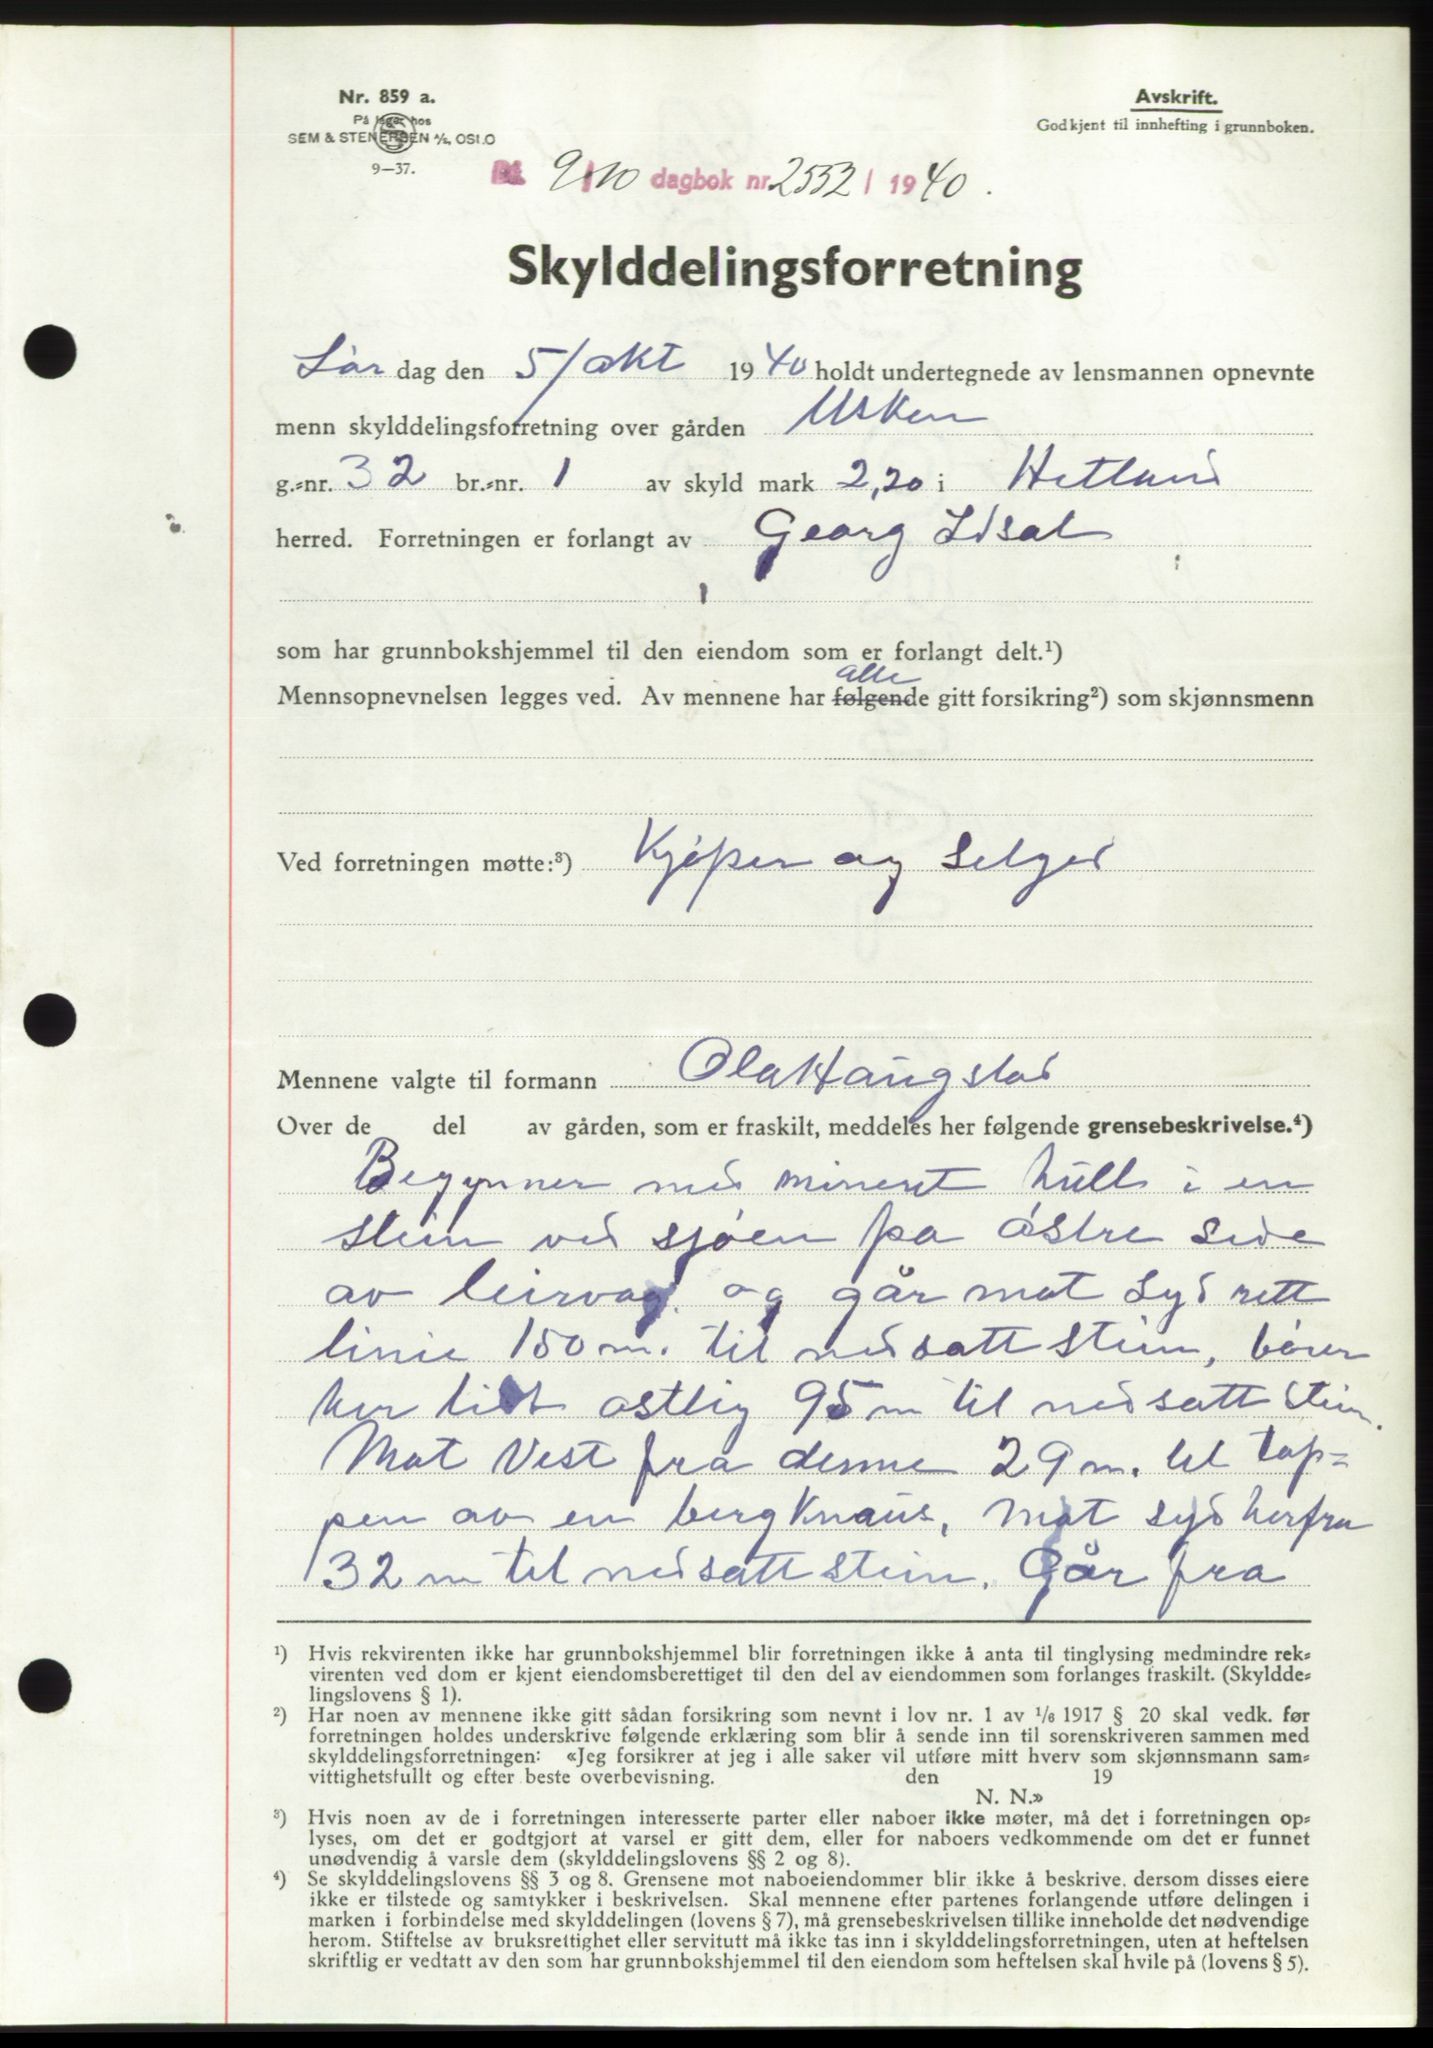 Nr. 859 a.
På lager hos
SEM & STENERSEN A/S, OSLO
9—37.
Avskrift.
Godkjent til innhefting i grunnboken.
9/10 dagbok nr. 2532 / 1940.
Skylddelingsforretning
Lør dag den 5/okt 1940 holdt undertegnede av lensmannen opnevnte
menn skylddelingsforretning over gården Usken
g.=nr. 32 br.=nr. 1 av skyld mark 2,20 i Hetland
herred. Forretningen er forlangt av Georg Idsal
som har grunnbokshjemmel til den eiendom som er forlangt delt.¹)
alle
Mennsopnevnelsen legges ved. Av mennene har følgende gitt forsikring²) som skjønnsmenn
Ved forretningen møtte:³) Kjøper og Selger
Mennene valgte til formann Ola Haugstad
Over de del av gården, som er fraskilt, meddeles her følgende grensebeskrivelse.⁴)
Begynner med mineret hull i en
stein ved sjøen på østre side
av leirvåg. og går mot syd rett
linie 150 m. til nedsatt stein, bøier
her lidt østlig 95 m til nedsatt stein.
Mot Vest fra denne 29 m. til top=
pen av en bergknaus, mot syd herfra
32 m til nedsatt stein. Går fra
¹) Hvis rekvirenten ikke har grunnbokshjemmel blir forretningen ikke å anta til tinglysing medmindre rek=
virenten ved dom er kjent eiendomsberettiget til den del av eiendommen som forlanges fraskilt. (Skyldde=
lingslovens § 1).
²) Har noen av mennene ikke gitt sådan forsikring som nevnt i lov nr. 1 av 1/6 1917 § 20 skal vedk. før
forretningen holdes underskrive følgende erklæring som blir å sende inn til sorenskriveren sammen med
skylddelingsforretningen: «Jeg forsikrer at jeg i alle saker vil utføre mitt hverv som skjønnsmann sam=
vittighetsfullt og efter beste overbevisning. den 19
N. N.»
³) Hvis noen av de i forretningen interesserte parter eller naboer ikke møter, må det i forretningen op=
lyses, om det er godtgjort at varsel er gitt dem, eller for naboers vedkommende om det er funnet
unødvendig å varsle dem (skylddelingslovens §§ 2 og 8).
⁴) Se skylddelingslovens §§ 3 og 8. Grensene mot naboeiendommer blir ikke å beskrive, dersom disses eiere
ikke er tilstede og samtykker i beskrivelsen. Skal mennene efter partenes forlangende utføre delingen i
marken i forbindelse med skylddelingen (lovens § 7), må grensebeskrivelsen tillike inneholde det nødvendige
herom. Stiftelse av bruksrettighet eller servitutt må ikke tas inn i skylddelingsforretningen, uten at heftelsen
skriftlig er vedtatt av den som har grunnbokshjemmel til den eiendom som heftelsen skal hvile på (lovens § 5).